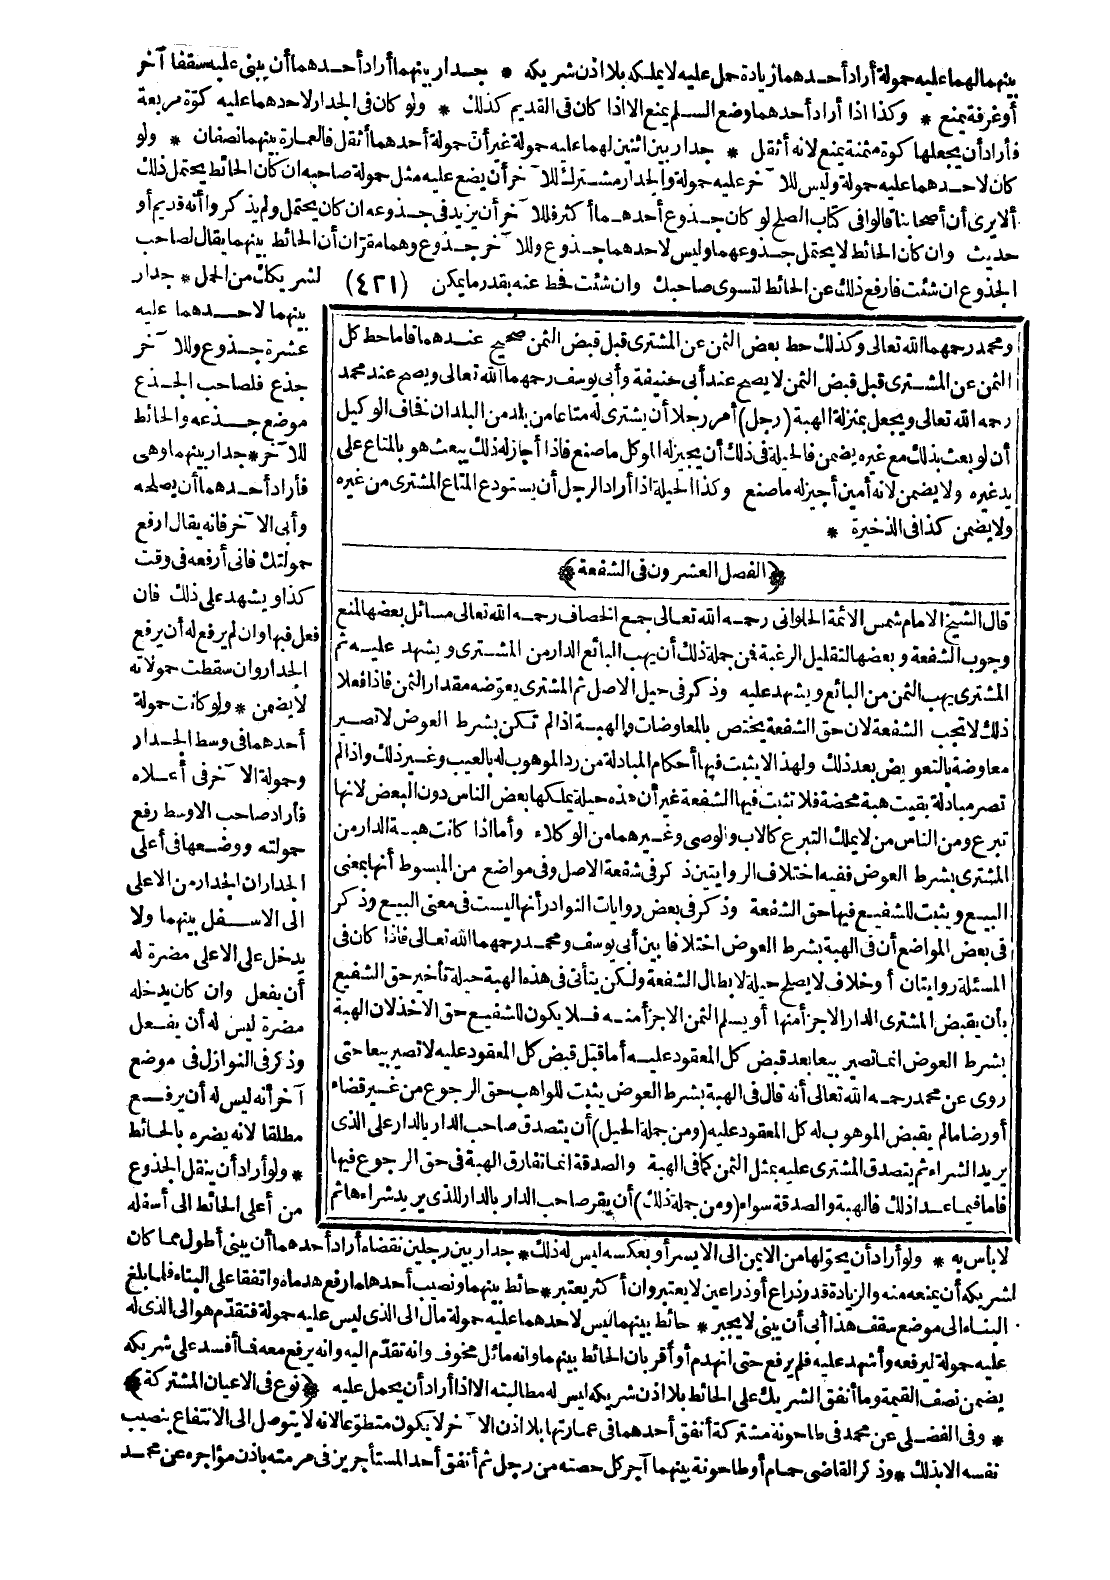 بينهما لهما عليه حمولة أراد أحدهما زيادة حمل عليه لا يملكه بلا اذن شريكه * جدار بينهما أراد أحدهما أن يبنى عليه سقفا آخر
أو غرفة يمنع * وكذا اذا أراد أحدهما وضع السلم يمنع الا اذا كان فى القديم كذلك * ولو كان فى الجدار لاحدهما عليه كوّة مربعة
فأراد أن يجعلها كوة مثمنة يمنع لانه أثقل * جدار بين اثنين لهما عليه حمولة غير أن حمولة أحدهما أثقل فالعمارة بينهما نصفان * ولو
كان لاحدهما عليه حمولة وليس للآخر عليه حمولة والجدار مشترك للآخر أن يضع عليه مثل حمولة صاحبه ان كان الحائط يحتمل ذلك
ألا يرى أن أصحابنا قالوا فى كتاب الصلح لو كان جذوع أحدهما أكثر فللآخر أن يزيد فى جذوعه ان كان يحتمل ولم يذكروا أنه قديم أو
حديث وان كان الحائط لا يحتمل جذوعهما وليس لاحدهما جذوع وللآخر جذوع وهما مقرّان أن الحائط بينهما يقال لصاحب
الجذوع ان شئت فارفع ذلك عن الحائط لتسوى صاحبك وان شئت فحط عنه بقدر ما يمكن (٤٢١) لشريكك من الحمل * جدار
بينهما لاحدهما عليه
عشرة جذوع وللآخر
جذع فلصاحب الجذع
موضع جذعه والحائط
للآخر * جدار بينهما وهى
فأراد أحدهما أن يصلحه
وأبى الآخر فانه يقال ارفع
حمولتك فانى أرفعه فى وقت
كذا ويشهد على ذلك فان
فعل فبها وان لم يرفع له أن يرفع
الجدار وان سقطت حمولاته
لا يضمن * ولو كانت حمولة
أحدهما فى وسط الجدار
وحمولة الآخر فى أعلاه
فأراد صاحب الاوسط رفع
حمولته ووضعها فى أعلى
الجدار ان الجدار من الاعلى
الى الاسفل بينهما ولا
يدخل على الاعلى مضرة له
أن يفعل وان كان يدخله
مضرة ليس له أن يفعل
وذكر فى النوازل فى موضع
آخر أنه ليس له أن يرفع
مطلقا لانه يضره بالحائط
* ولو أراد أن ينقل الجذوع
من أعلى الحائط الى أسفله
ومحمد رحمهما الله تعالى وكذلك حط بعض الثمن عن المشترى قبل قبض الثمن صحيح عندهما فاما حط كل
الثمن عن المشترى قبل قبض الثمن لا يصح عند أبى حنيفة وأبى يوسف رحمهما الله تعالى ويصح عند محمد
رحمه الله تعالى ويجعل بمنزلة الهبة (رجل) أمر رجلا أن يشترى له متاعا من بلد من البلدان فخاف الوكيل
أن لو بعث بذلك مع غيره يضمن فالحيلة فى ذلك أن يجيز له الموكل ما صنع فاذا أجاز له ذلك يبعث هو بالمتاع على
يد غيره ولا يضمن لانه أمين أجيز له ما صنع وكذا الحيلة اذا أراد الرجل أن يستودع المتاع المشترى من غيره
ولا يضمن كذا فى الذخيرة *
﴿الفصل العشرون فى الشفعة﴾
قال الشيخ الامام شمس الائمة الحلوانى رحمه الله تعالى جمع الخصاف رحمه الله تعالى مسائل بعضها لمنع
وجوب الشفعة وبعضها لتقليل الرغبة فمن جملة ذلك أن يهب البائع الدار من المشترى ويشهد عليه ثم
المشترى يهب الثمن من البائع ويشهد عليه وذكر فى حيل الاصل ثم المشترى يعوّضه مقدار الثمن فاذا فعلا
ذلك لا تجب الشفعة لان حق الشفعة يختص بالمعاوضات والهبة اذا لم تكن بشرط العوض لا تصير
معاوضة بالتعويض بعد ذلك ولهذا لا يثبت فيها أحكام المبادلة من رد الموهوب له بالعيب وغير ذلك واذا لم
تصر مبادلة بقيت هبة محضة فلا تثبت فيها الشفعة غير أن هذه حيلة يملكها بعض الناس دون البعض لانها
تبرع ومن الناس من لا يملك التبرع كالاب والوصى وغيرهما من الوكلاء وأما اذا كانت هبة الدار من
المشترى بشرط العوض ففيه اختلاف الروايتين ذكر فى شفعة الاصل وفى مواضع من المبسوط أنها بمعنى
البيع ويثبت للشفيع فيها حق الشفعة وذكر فى بعض روايات النوادر أنها ليست فى معنى البيع وذكر
فى بعض المواضع أن فى الهبة بشرط العوض اختلافا بين أبى يوسف ومحمد رحمهما الله تعالى فاذا كان فى
المسئلة روايتان أو خلاف لا يصلح حيلة لابطال الشفعة ولكن يتأتى فى هذه الهبة حيلة تأخير حق الشفيع
بأن يقبض المشترى الدار الا جزأ منها أو يسلم الثمن الا جزأ منه فلا يكون للشفيع حق الاخذ لان الهبة
بشرط العوض انما تصير بيعا بعد قبض كل المعقود عليه أما قبل قبض كل المعقود عليه لا تصير بيعا حتى
روى عن محمد رحمه الله تعالى أنه قال فى الهبة بشرط العوض يثبت للواهب حق الرجوع من غير قضاء
أو رضا ما لم يقبض الموهوب له كل المعقود عليه (ومن جملة الحيل) أن يتصدق صاحب الدار بالدار على الذى
يريد الشراء ثم يتصدق المشترى عليه بمثل الثمن كما فى الهبة والصدقة انما تفارق الهبة فى حق الرجوع فيها
فاما فيما عدا ذلك فالهبة والصدقة سواء (ومن جملة ذلك) أن يقر صاحب الدار بالدار للذى يريد شراءها ثم
لا بأس به * ولو أراد أن يحوّلها من الايمن الى الايسر أو بعكسه ليس له ذلك * جدار بين رجلين نقضاه أراد أحدهما أن يبنى أطول مما كان
لشريكه أن يمنعه منه والزيادة قدر ذراع أو ذراعين لا يعتبر وان أكثر يعتبر * حائط بينهما ونصيب أحدهما ما رفع هدماه واتفقا على البناء فلما بلغ
البناء الى موضع سقف هذا أبى أن يبنى لا يجبر * حائط بينهما ليس لاحدهما عليه حمولة مال الى الذى ليس عليه حمولة فتقدّم هو الى الذى له
عليه حمولة ليرفعه وأشهد عليه فلم يرفع حتى انهدم أو أقر بان الحائط بينهما وانه مائل مخوف وانه تقدّم اليه وانه يرفع معه فما أفسد على شريكه
يضمن نصف القيمة وما أنفق الشريك على الحائط بلا اذن شريكه ليس له مطالبته الا اذا أراد أن يحمل عليه ﴿نوع فى الاعيان المشتركة﴾
* وفى الفضلى عن محمد فى طاحونة مشتركة أنفق أحدهما فى عمارتها بلا اذن الآخر لا يكون متطوّعا لانه لا يتوصل الى الانتفاع بنصيب
نفسه الا بذلك * وذكر القاضى حمام أو طاحونة بينهما آجر كل حصته من رجل ثم أنفق أحد المستأجرين فى مرمته باذن مؤاجره عن محمد